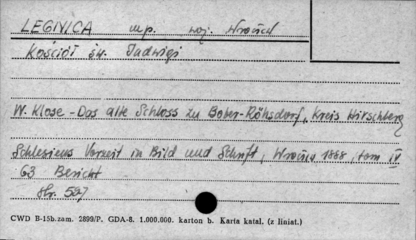 LEGNICA m.p. woj. Wrocław
Kościół św. Jadwigi
W. Klose - Das alte Schloss zu Bober-Röhrsdorf, Kreis Hirschberg
Schlesiens Vorzeit in Bild und Schrift, Wrocław 1888, tom IV
63 Bericht
Str. 587
CWD B-15b. zam. 2899/P. GDA-8. 1.000.000. karton b. Karta katal. (z liniat.)